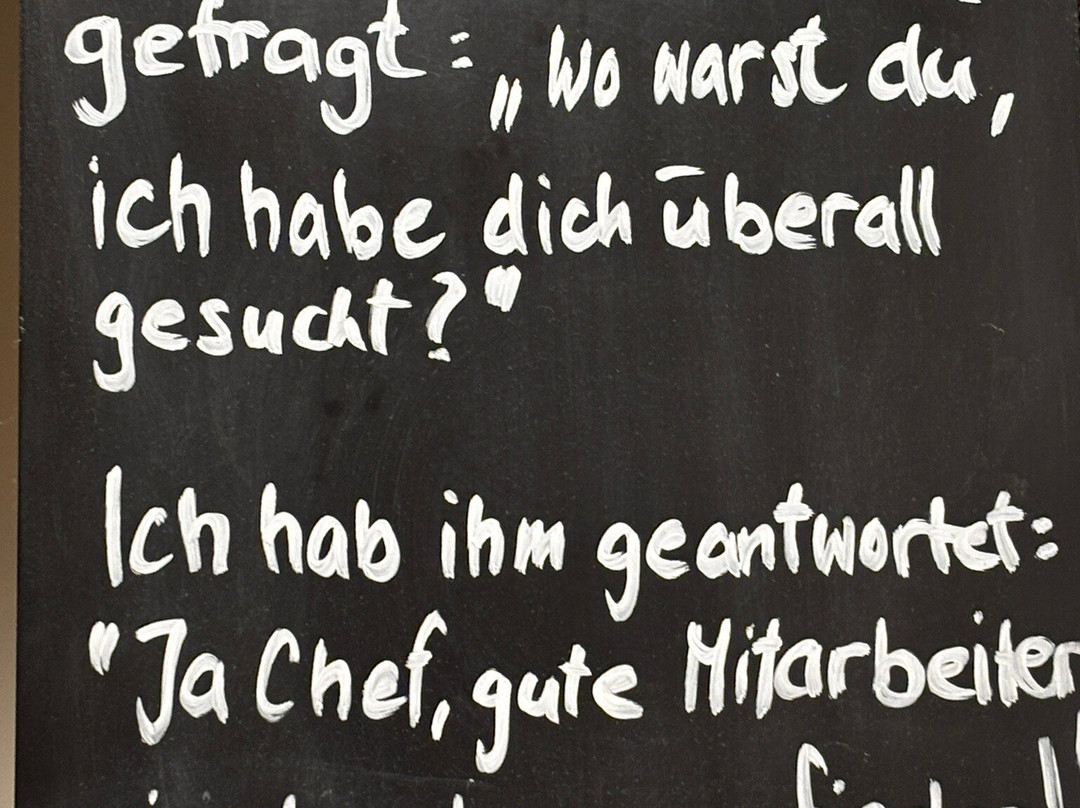 gefragt: „Wo warst du,
ich habe dich überall
gesucht?"
Ich hab ihm geantwortet:
"Ja Chef, gute Mitarbeiter